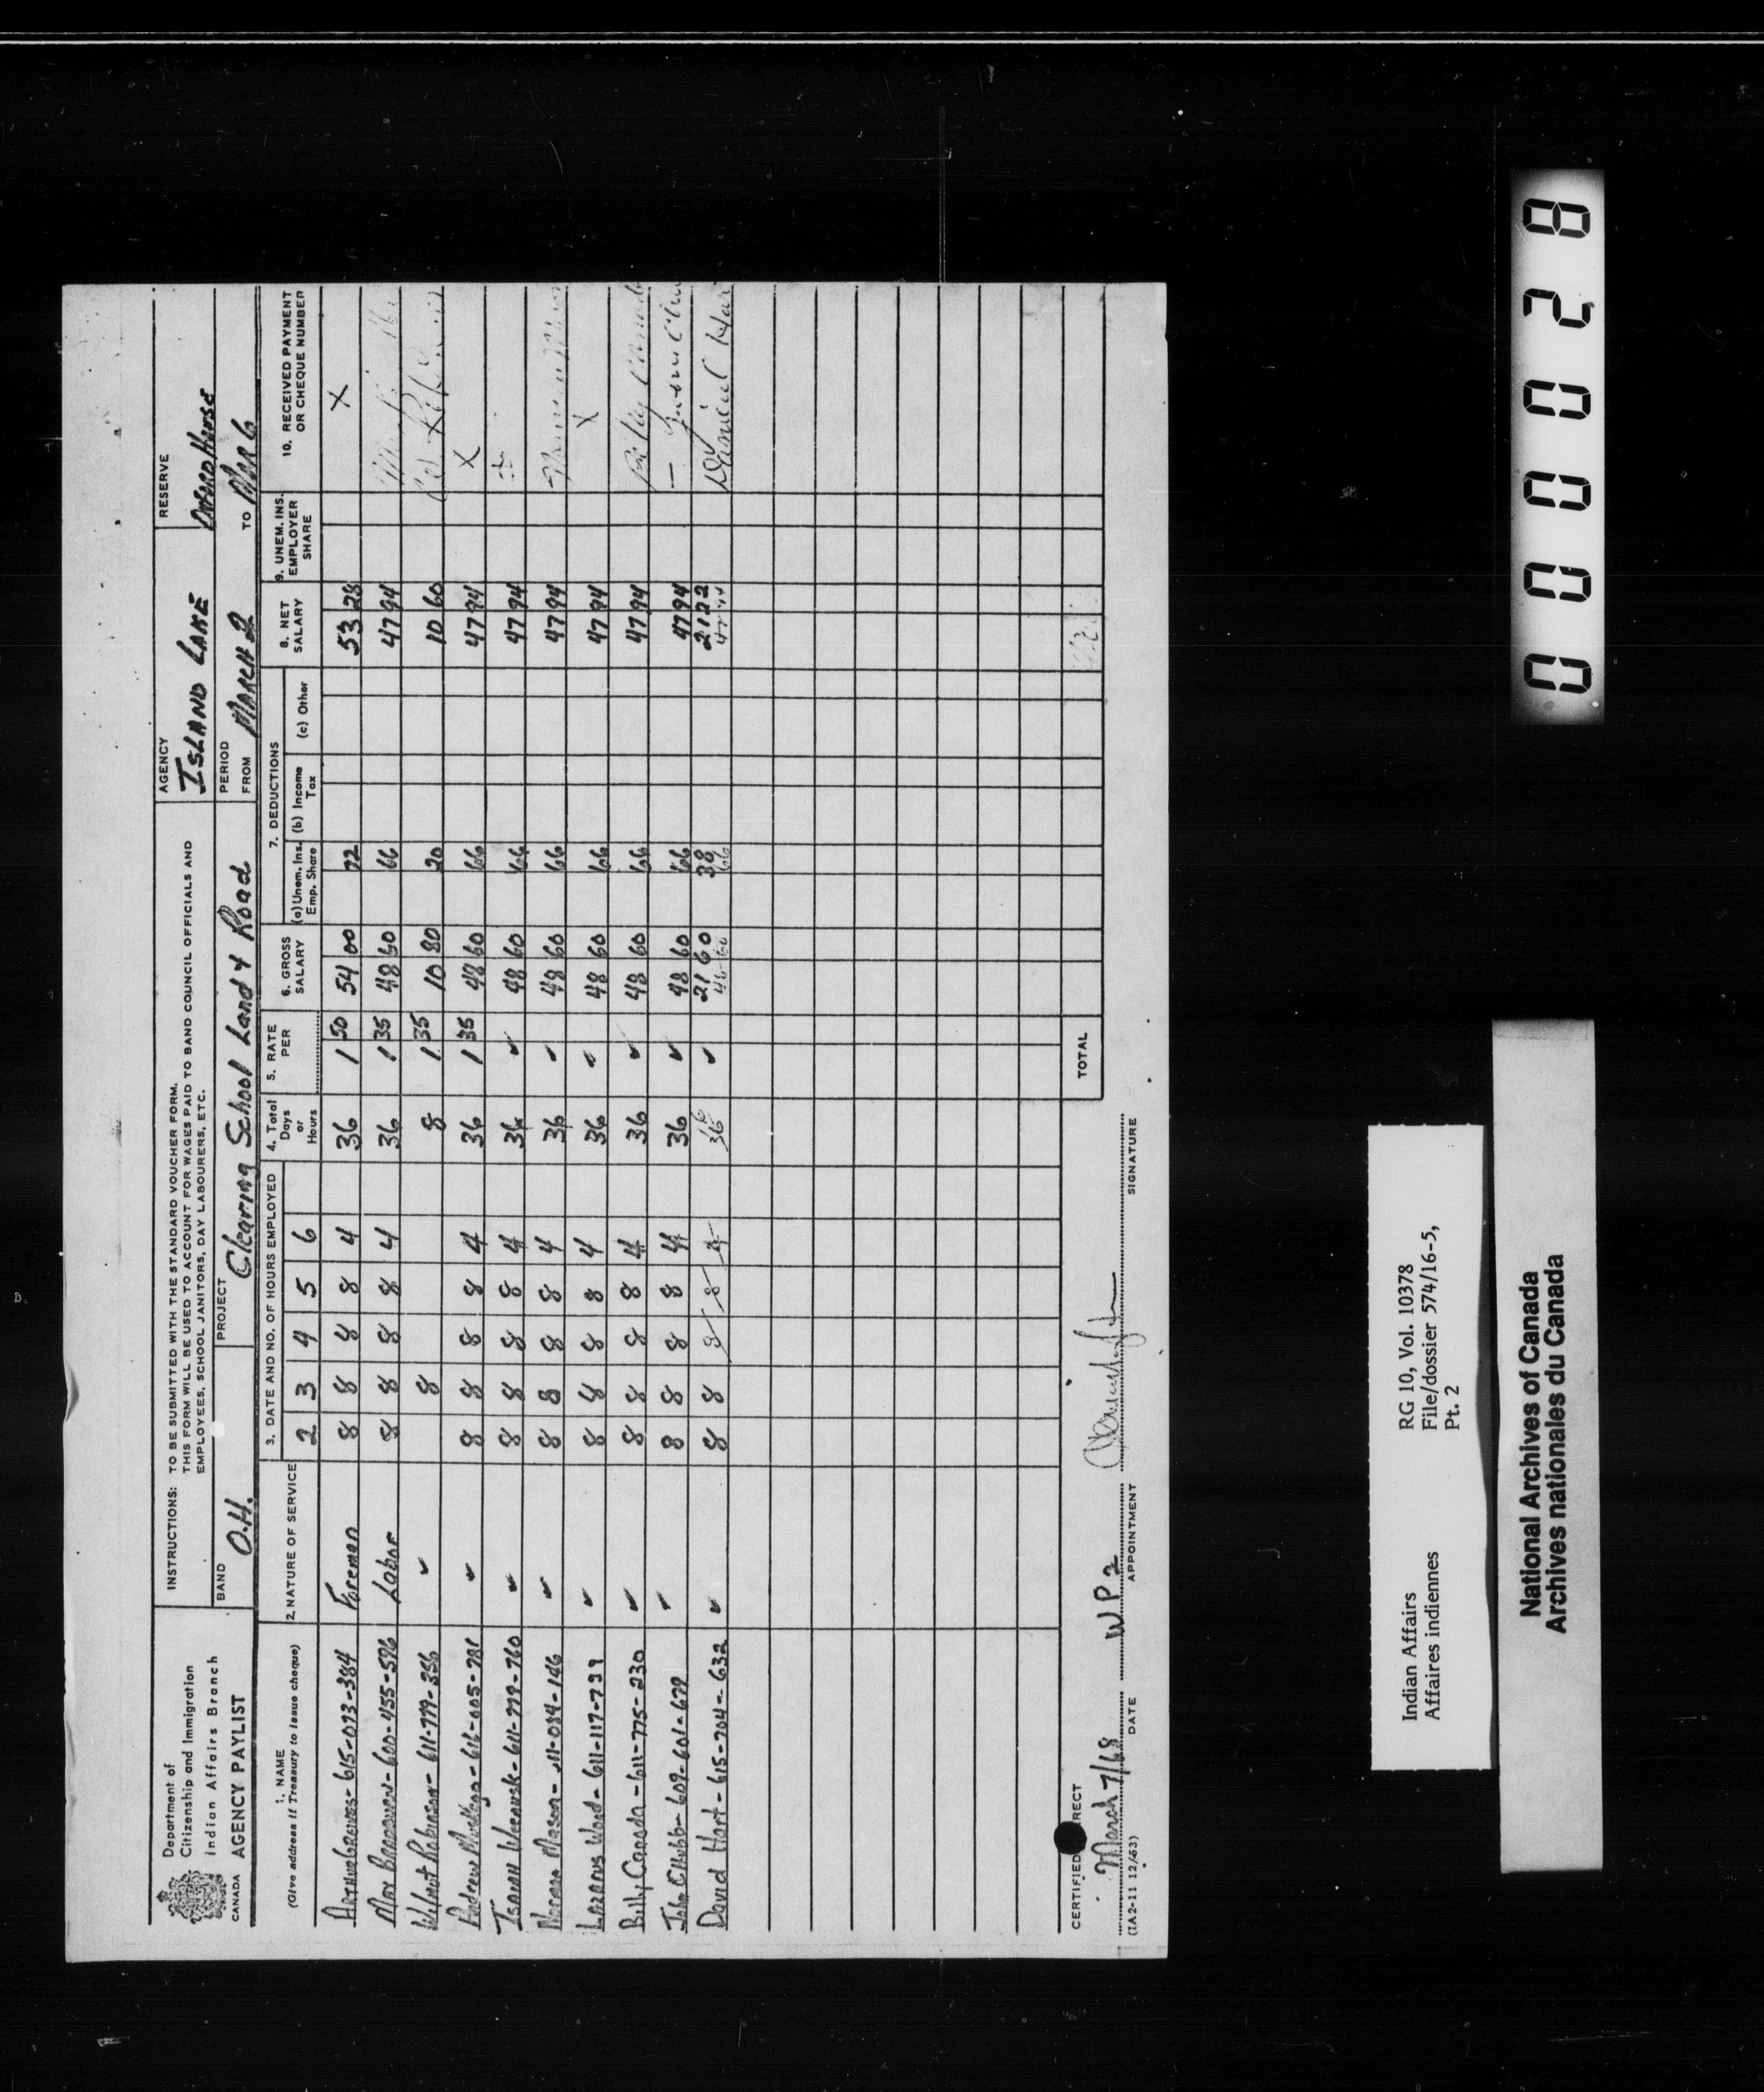 Department of
Citizenship and Immigration
Indian Affairs Branch
CANADA AGENCY PAYLIST
INSTRUCTIONS: TO BE SUBMITTED WITH THE STANDARD VOUCHER FORM.
THIS FORM WILL BE USED TO ACCOUNT FOR WAGES PAID TO BAND COUNCIL OFFICIALS AND
EMPLOYEES, SCHOOL JANITORS, DAY LABOURERS, ETC.
AGENCY
ISLAND LAKE
RESERVE
OXFORD HOUSE
BAND
O.H.
PROJECT
Clearing School Land & Road
PERIOD
FROM MARCH 2 TO MAR 6
1. NAME
(Give address if Treasury to issue cheque)
2. NATURE OF SERVICE
3. DATE AND NO. OF HOURS EMPLOYED
2 3 4 5 6
4. Total Days or Hours
5. RATE PER
6. GROSS SALARY
7. DEDUCTIONS
(a) Unem. Ins. Emp. Share
(b) Income Tax
(c) Other
8. NET SALARY
9. UNEM. INS. EMPLOYER SHARE
10. RECEIVED PAYMENT OR CHEQUE NUMBER
ARTHUR GRIEVES - 615-073-384 Foreman 8 8 8 8 4 36 1 50 54 00 72 53 28 X
600-455-596 Labor 8 8 8 8 4 36 1 35 48 60 66 47 94
Wilmot Robinson - 611-779-356 ✓ 8 8 1 35 10 80 20 10 60
Andrew - 616-005-781 ✓ 8 8 8 8 4 36 1 35 48 60 66 47 94 X
ISAIAH - 611-779-760 ✓ 8 8 8 8 4 36 ✓ 48 60 66 47 94
Norman Mason - 11-084-146 ✓ 8 8 8 8 4 36 ✓ 48 60 66 47 94
LAZARUS Wood - 611-117-739 ✓ 8 8 8 8 4 36 ✓ 48 60 66 47 94 X
Billy Canada - 611-775-230 ✓ 8 8 8 8 4 36 ✓ 48 60 66 47 94
John Chubb - 609-601-679 ✓ 8 8 8 8 4 36 ✓ 48 60 66 47 94
David Hart - 615-704-632 ✓ 8 8 8 8 4 36 16 ✓ 21 60 48 60 38 66 21 22 47 94
TOTAL
CERTIFIED RECT
March 7/68 W P 2
DATE APPOINTMENT SIGNATURE
(IA 2-11 12/63)
Indian Affairs RG 10, Vol. 10378
Affaires indiennes File/dossier 574/16-5,
Pt. 2
National Archives of Canada
Archives nationales du Canada
000028